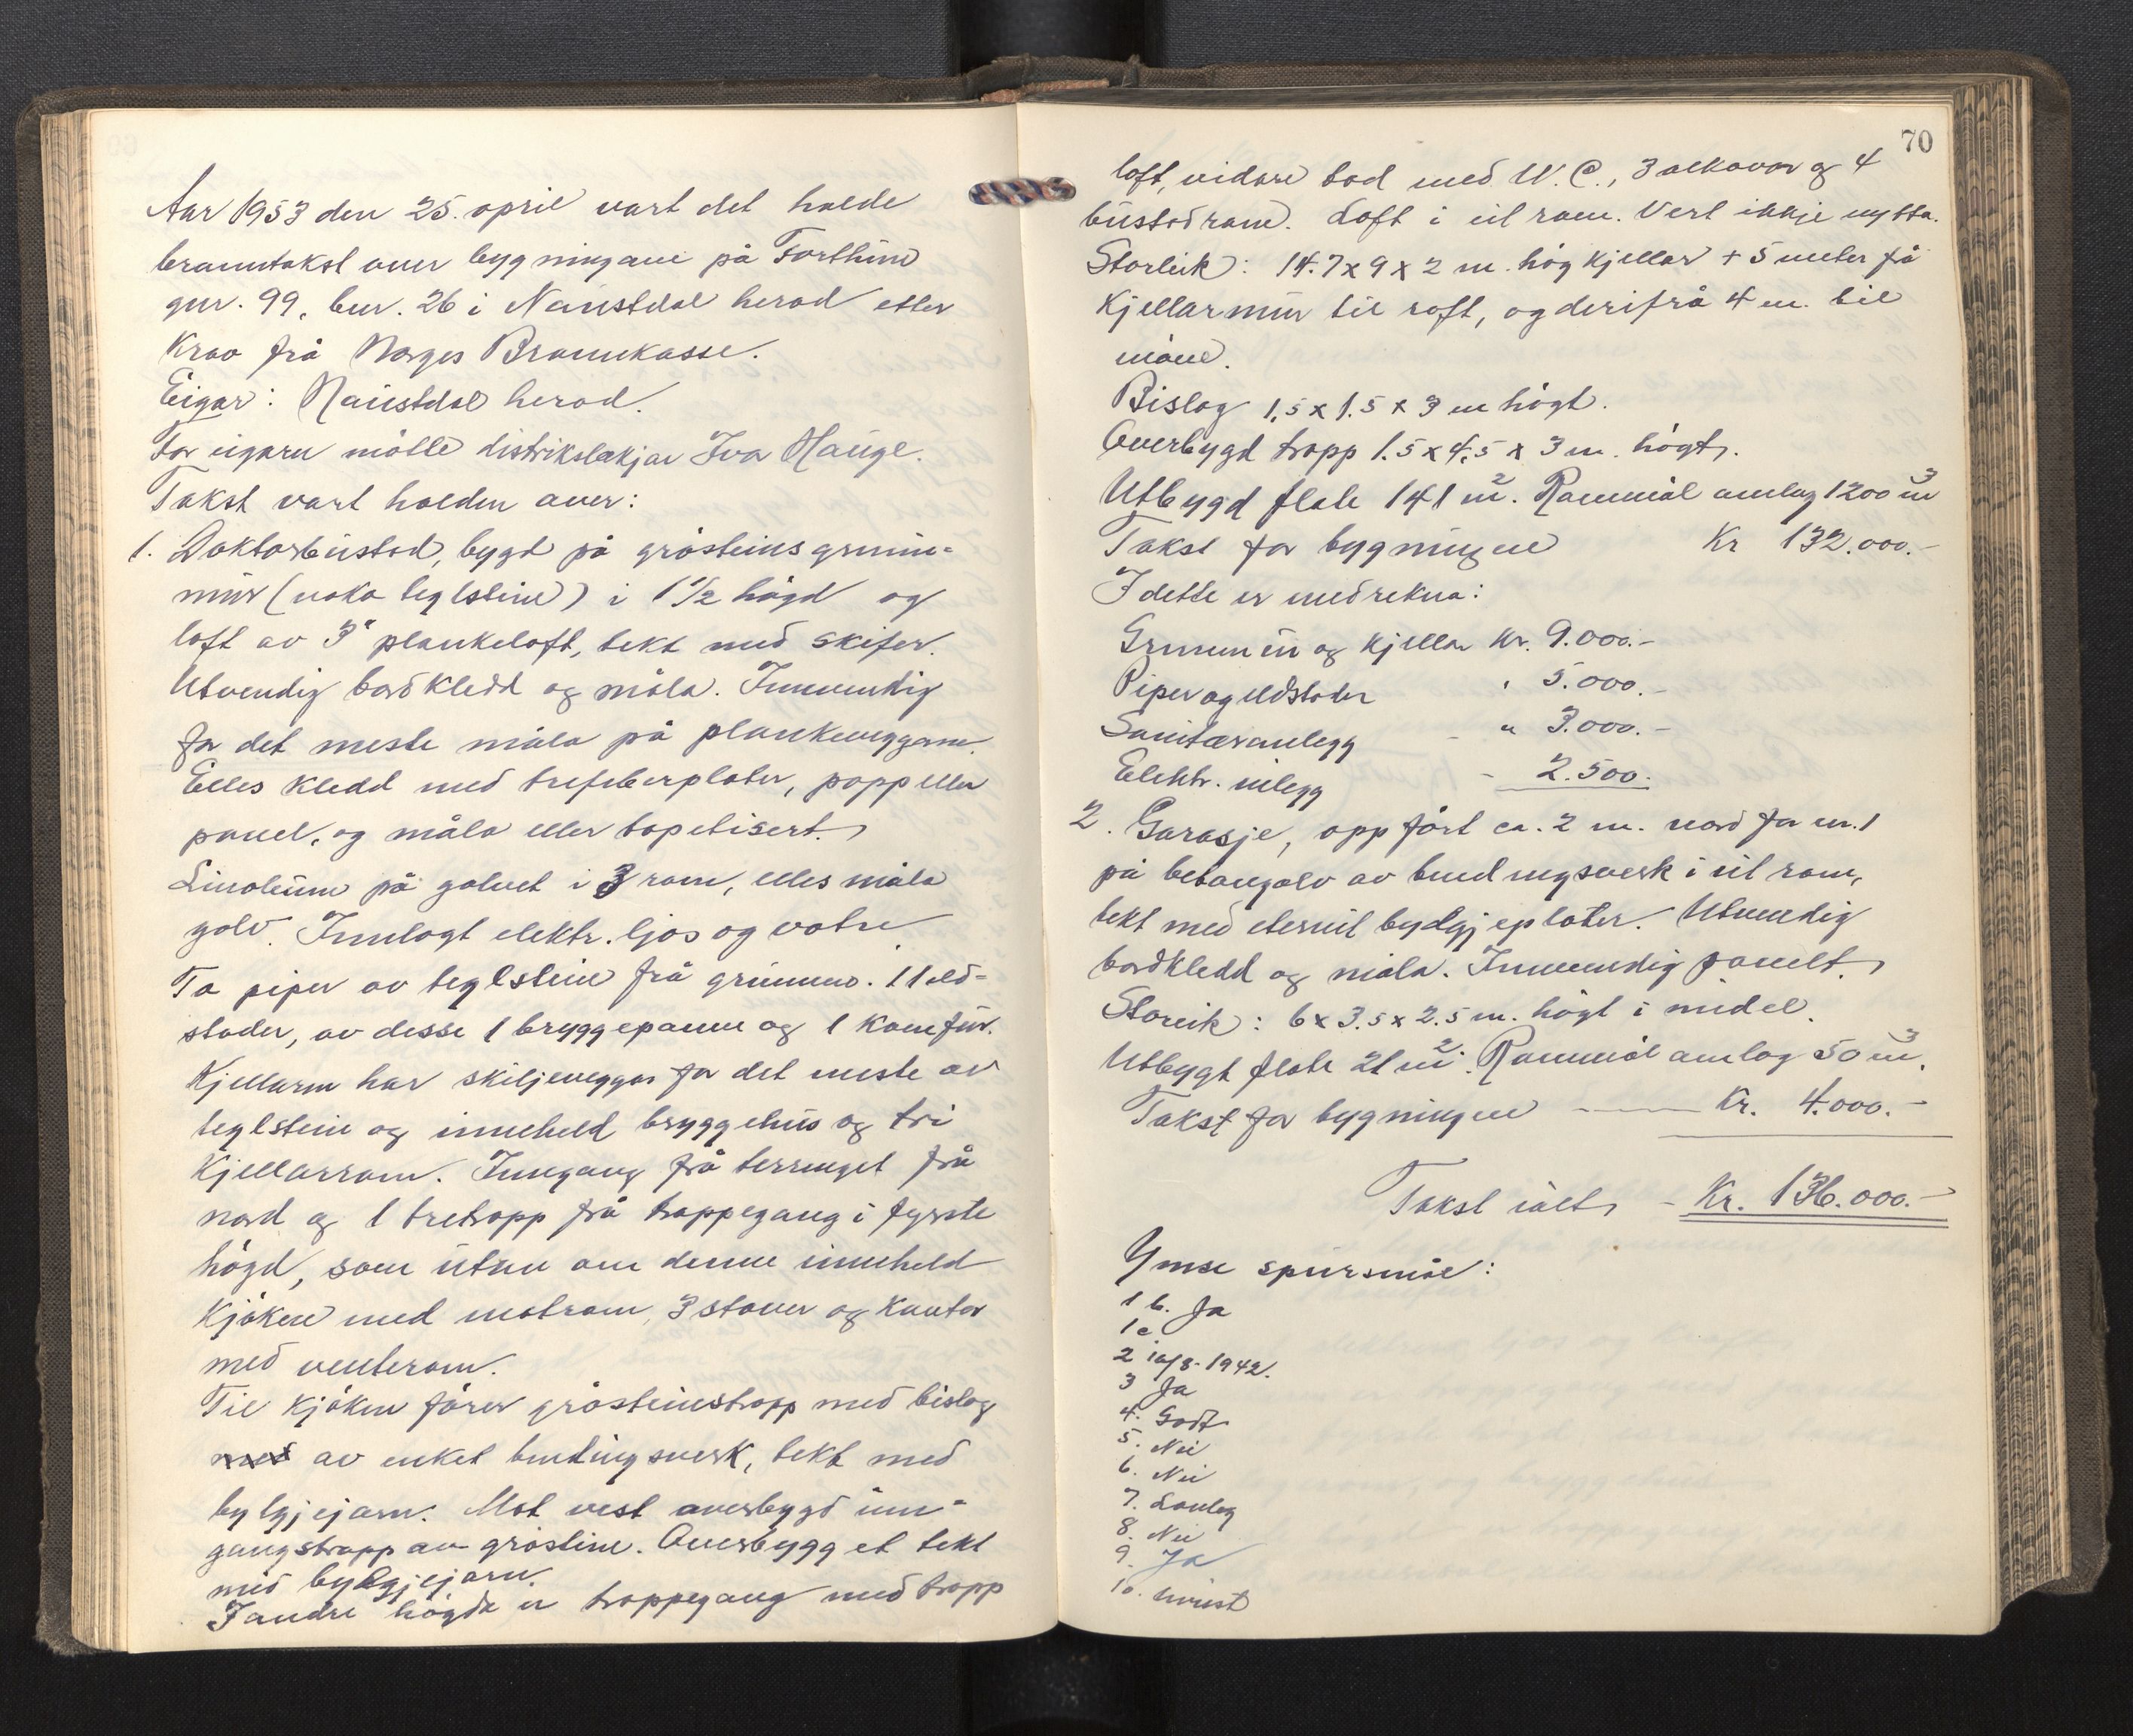 Aar 1953 den 25. april vart det halde
branntakst over bygningane på Forthun
gnr. 99, bnr. 26 i Naustdal herad etter
krav frå Norges Brannkasse.
Eigar: Naustdal herad.
For eigaren møtte distriktslækjar Ivar Hauge.
Takst vart halden over:
1. Doktorbustad, bygd på gråsteins grunn-
mur (noko teglstein) i 1 1/2 høgd og
loft av 3" plankeloft, tekt med skifer.
Utvendig bordkledd og måla. Innvendig
for det meste måla på plankeveggane.
Elles kledd med trefiberplater, papp eller
panel, og måla eller tapetisert.
Linoleum på golvet i 3 rom, elles måla
golv. Innlagt elektr. ljos og vatn.
To piper av teglstein frå grunnen. 11 eld-
stader, av desse 1 bryggepanne og 1 komfyr.
Kjellaren har skiljeveggar for det meste av
teglstein og inneheld bryggehus og tri
kjellarrom. Inngang frå terrenget frå
nord og 1 tretropp frå troppegang i fyrste
høgd, som utan om denne inneheld
kjøken med matrom, 3 stover og kontor
med venterom.
Til kjøken fører gråsteinstropp med bislag
med av enkel bindingsverk, tekt med
bylgjejarn. Mot vest overbygd inn-
gangstropp av gråstein. Overbygget tekt
med bylgjejarn.
I andre høgda er troppegang med tropp
70
loft, vidare bad med W.C., 3 alkovar og 4
bustadrom. Loft i eit rom. Vert ikkje nytta.
Storleik: 14.7 x 9 x 2 m. høg kjellar + 5 meter frå
kjellarmur til raft, og derifrå 4 m. til
møne.
Bislag 1,5 x 1.5 x 3 m høgt.
Overbygd tropp 1.5 x 4,5 x 3 m. høgt.
Utbygd flate 141 m². Rommål omlag 1200 m³
Takst for bygningen Kr 132.000.-
I dette er medrekna:
Grunnmur og kjellar Kr. 9.000.-
Piper og eldstader " 5.000.-
Sanitæranlegg - " 3.000.-
Elektr. inlegg - 2.500.-
2. Garasje, oppført ca. 2 m. nord for nr. 1
på betongolv av bindingsverk i eit rom,
tekt med eternit bylgjeplater. Utvendig
bordkledd og måla. Innvendig panelt.
Storleik: 6 x 3.5 x 2.5 m. høgt i midel.
Utbygt flate 21 m². Rommål omlag 50 m³.
Takst for bygningen - Kr. 4.000.-
Takst ialt - Kr. 136.000.-
Ymse spursmål:
1 b. Ja
1c
2 10/8-1942.
3 Ja
4. Godt
5. Nei
6. Nei
7. Lovleg
8. Nei
9. Ja
10.